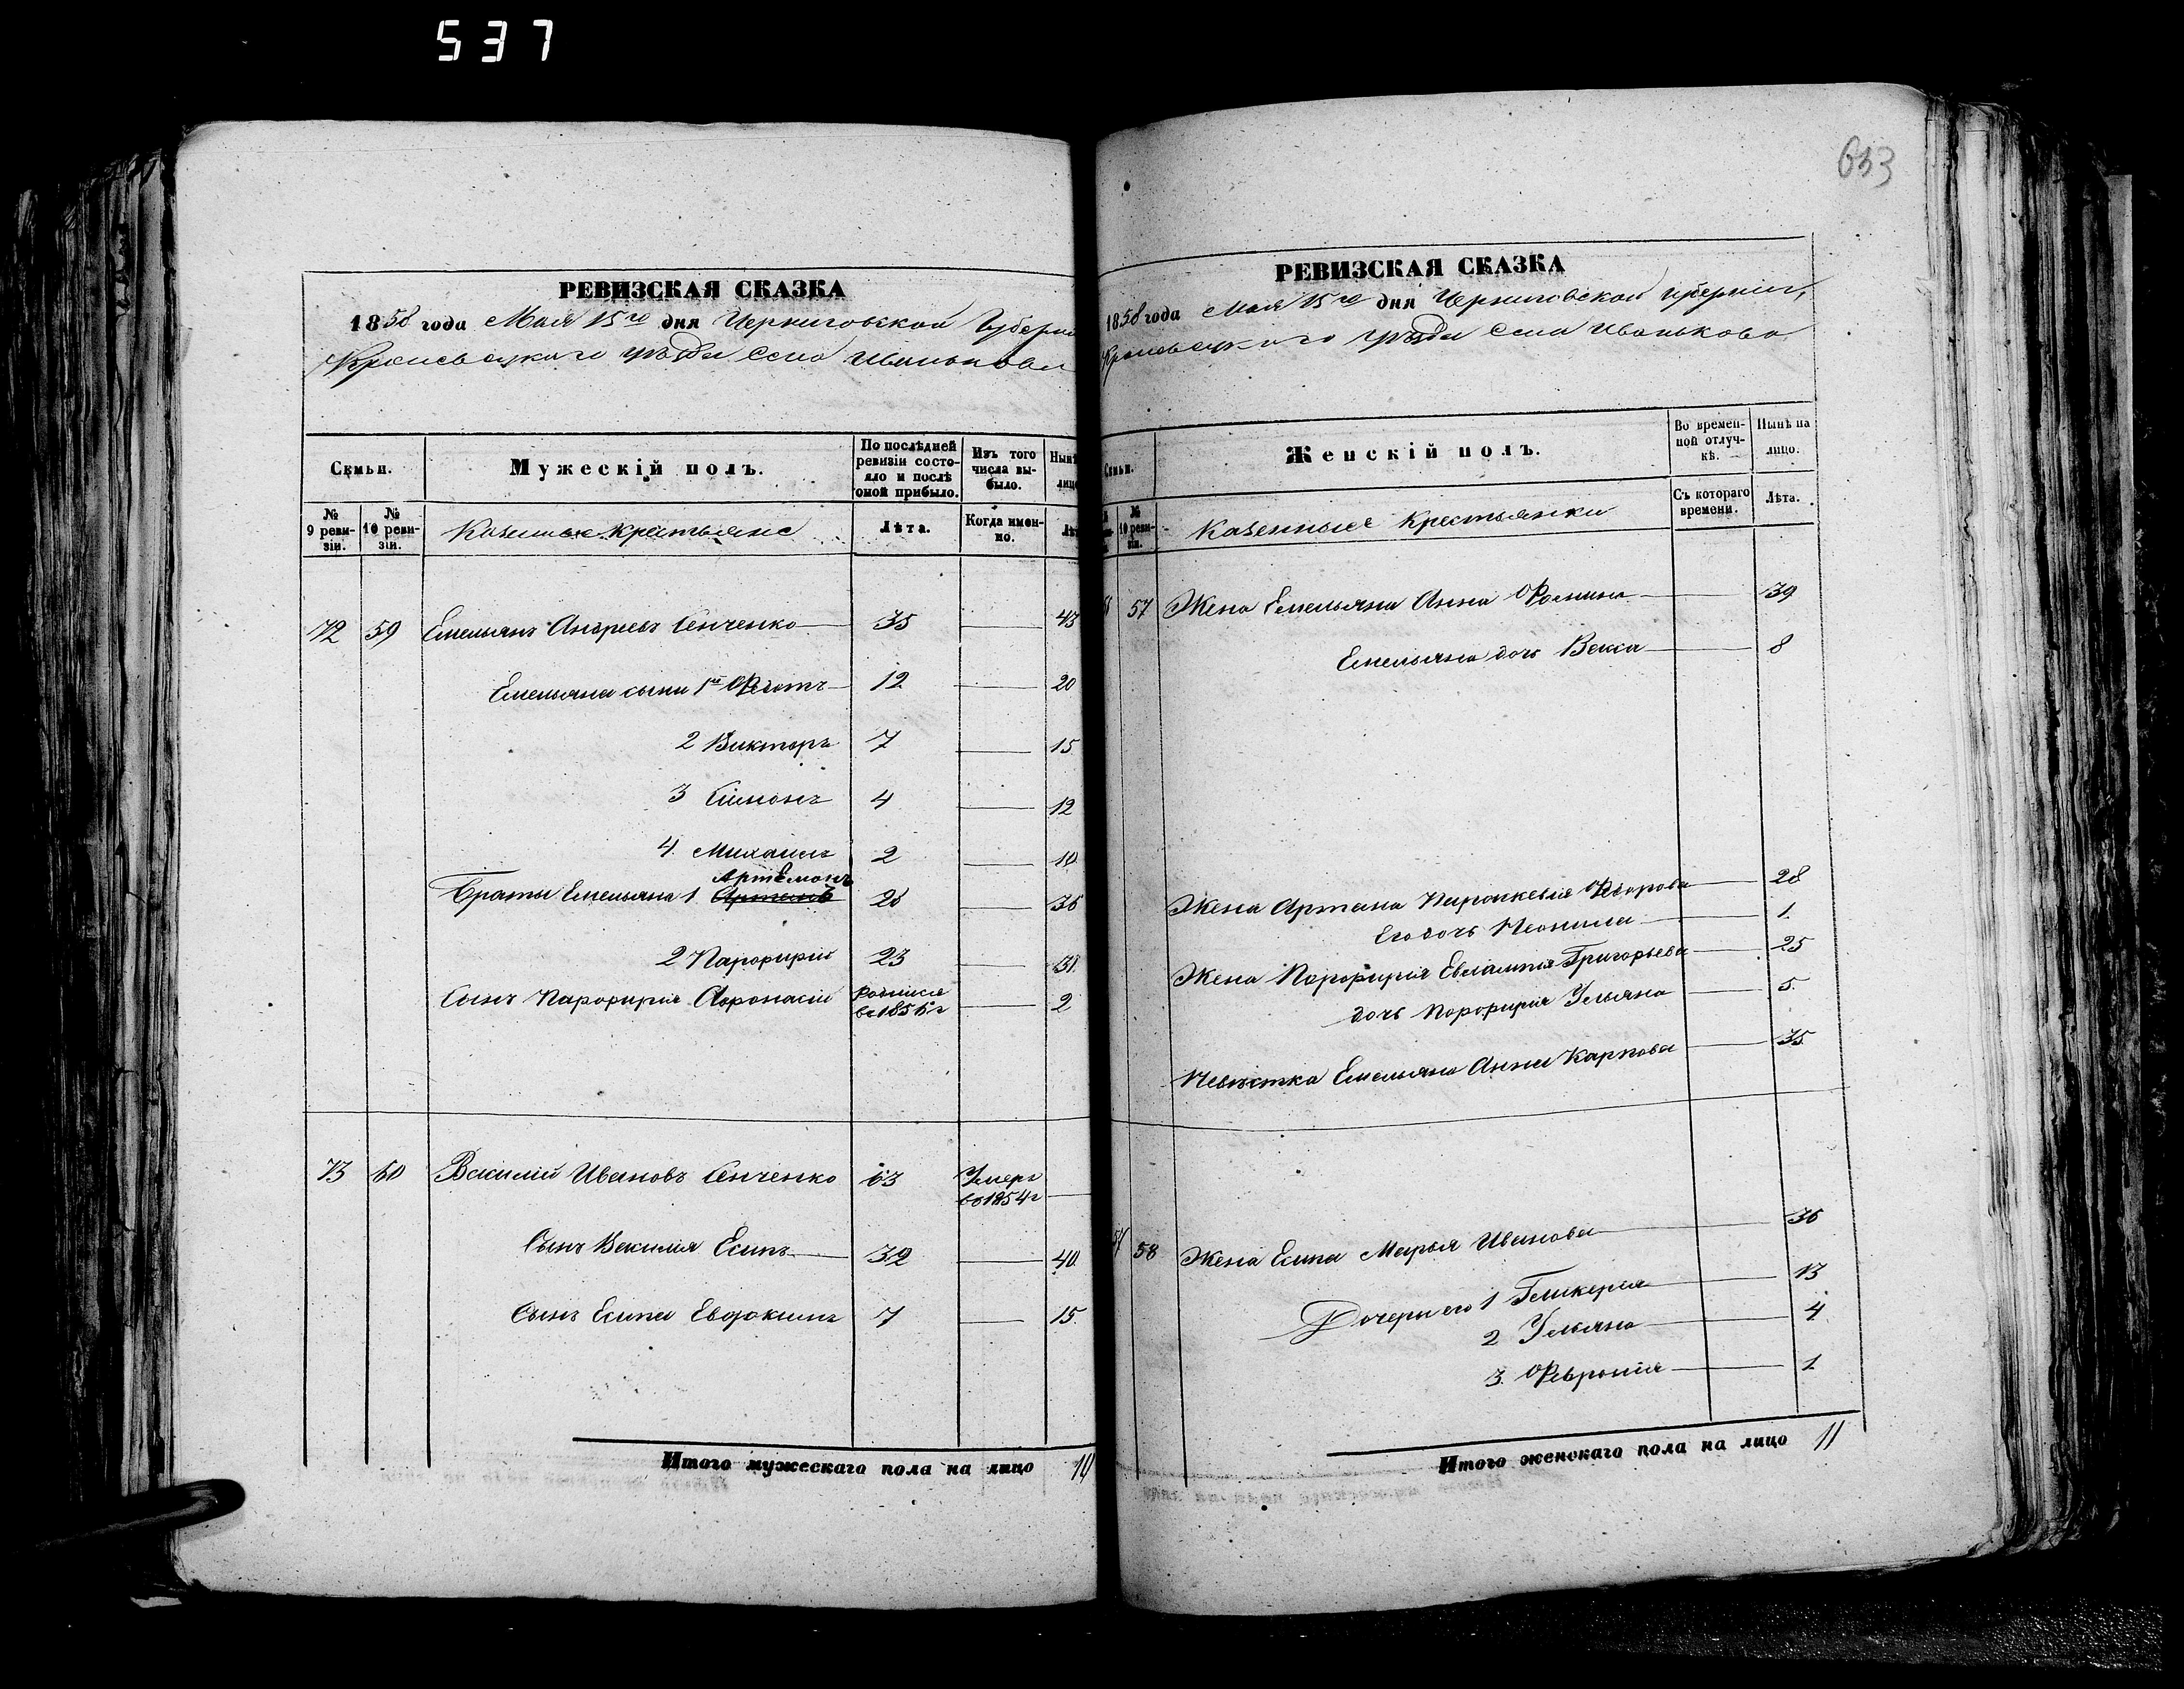 537
РЕВИЗСКАЯ СКАЗКА
1858 года Мая 15го дня Черниговской Губерн
Кролевецкаго уѣзда Села Иванькова
Семьи.
Мужескій полъ.
По послѣдней ревизіи состояло и послѣ оной прибыло.
Изъ того числа выбыло.
Нынѣ
лице
№ 9 ревизіи.
№ 10 ревизіи.
Казенные крестьяне
Лѣта.
Когда именно.
Лѣ
72 59 Емельянъ Андреевъ Сенченко 35 43
Емельяна сыны 1й Ѳедотъ 12 20
2 Викторъ 7 15
3 Симонъ 4 12
4. Михаилъ 2 10
Артемонъ
Браты Емельяна 1 28 36
2 Парфирій 23 31.
Сынъ Парфирія Афонасій родился въ 1856 г 2
73 60 Василий Ивановъ Сенченко 63 Умеръ въ 1854 г
Сынъ Василія Есипъ 32 40.
Сынъ Есипа Евдокимъ 7 15.
Итого мужескаго пола на лицо 10
633
РЕВИЗСКАЯ СКАЗКА
1858 года Мая 15го дня Черниговской губерніи,
Кролевецкаго уѣзда Села Иванькова
Семьи.
Женскій полъ.
Во временной отлучкѣ.
Нынѣ на лицо.
№ 10 ревизіи.
Казенные крестьянки
Съ котораго времени.
Лѣта.
57 Жена Емельяна Анна Фомина 39
Емельяна дочь Васса 8
Жена Артема Параскевія Ѳедорова 28
Его дочь Неонила 1.
Жена Порфирія Евлампія Григорьева 25
дочь Порфирія Ульяна 5.
Невѣстка Емельяна Анна Карпова 35
58 Жена Есипа Марья Иванова 36
Дочери его 1 Гликерія 13
2 Ульяна 4.
3. Февронія 1
Итого женскаго пола на лицо 11